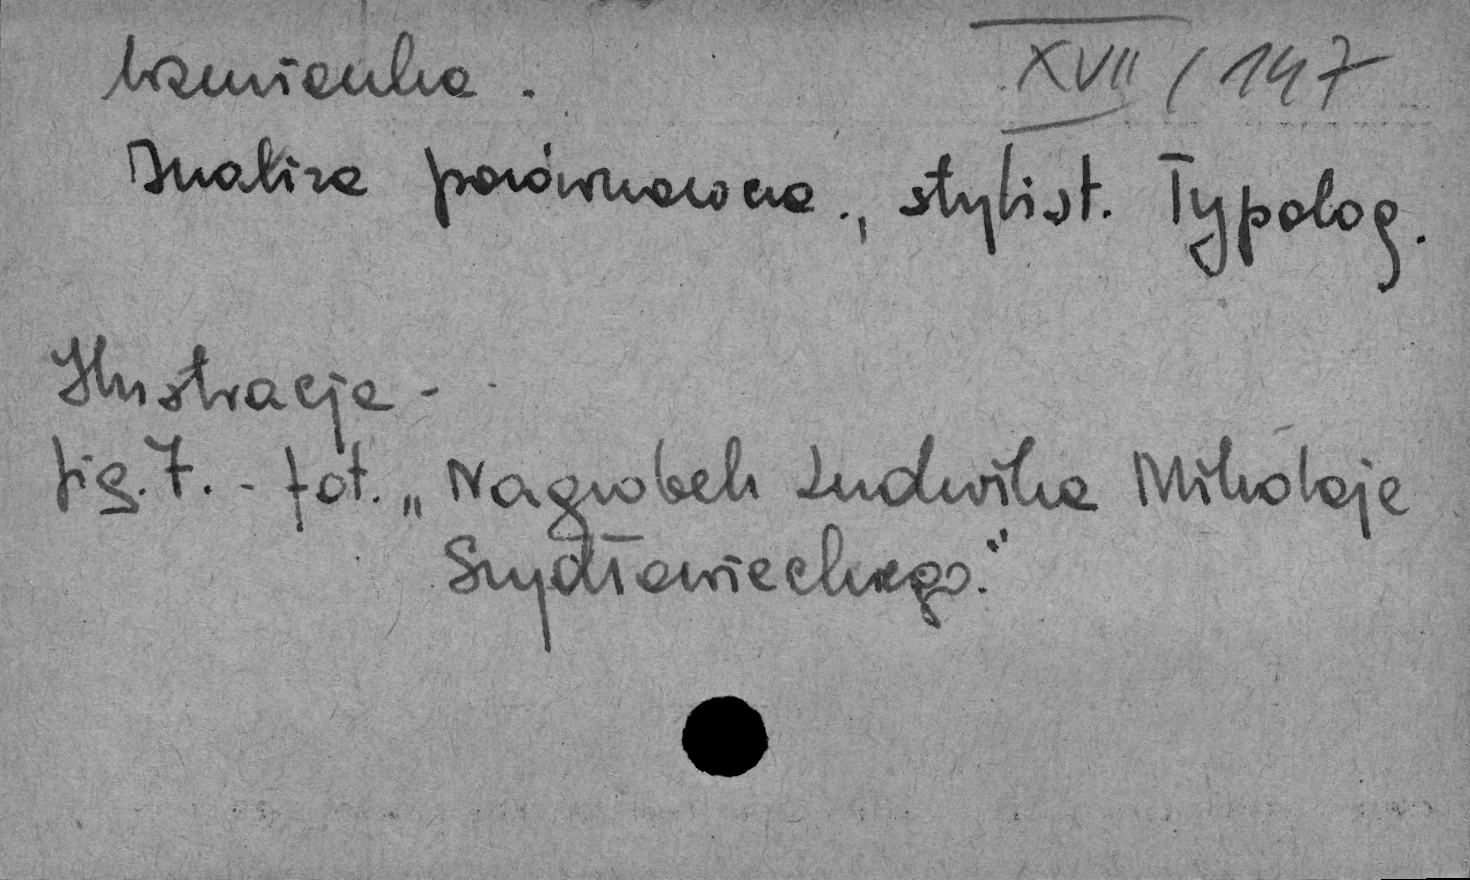 wzmianka.
XVII / 147
Analiza porównawcza., stylist. Typolog.
Ilustracje -
fig. 7. - fot. „Nagrobek Ludwika Mikołaja
Szydłowieckiego."